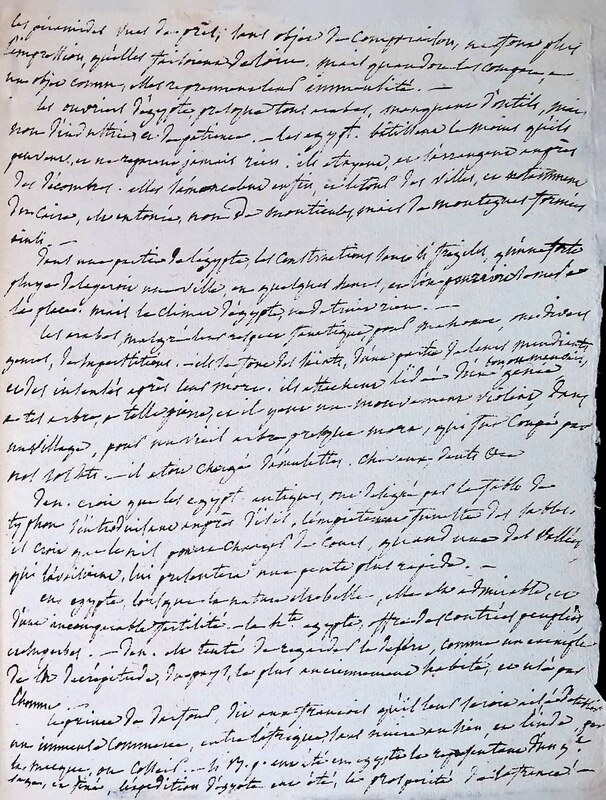 les piramides vues de près, sans objet de comparaison, ne font plus
l'impression, qu'elles faisoient de loin, mais quand on les compare, a
un objet connu, elles reprennent leur immensité. —
les ouvriers d'égypte, presque tous arabes, manquent d'outils, mais
non d'industrie, et de patience. — les egypt. bâtissent le moins qu'ils
peuvent, et ne reparent jamais rien. ils étayent, et s'arrangent auprès
des décombres. elles s'amoncelent enfin, et le tour des villes, et notamment
du Caire, est entouré, non de monticules, mais de montagnes formées
ainsi —
Dans une partie de l'égypte, les constructions sont si fragiles, qu'une forte
pluye delayeroit une ville, en quelques heures, et l'on pourroit semer a
sa place. mais le climat d'égypte, ne detruit rien. —
les arabes, malgré leur respect fanatique pour mahomet, ont divers
genres, de superstitions. — ils se font des saints, d'une partie de leurs mendiants
et des insensés après leur mort. ils attachent l'idée d'un génie
a tel arbre, a telle pierre, et il y eut un mouvement violent dans
un village, pour un vieil arbre presque mort, qui fut coupé par
nos soldats. — il etoit chargé d'amulettes. cheveux, dents &c
Den. croit que les egypt. antiques, ont designé par la fable de
typhon s'introduisant auprès d'isis, l'empietement funeste des sables.
il croit que le nil pourra changer de cours, quand une des vallées
qui l'avoisinent, lui presentera une pente plus rapide. —
en egypte, lorsque la nature est belle, elle est admirable, et
d'une incomparable fertilité. — la hte egypte, offre des contrées peuplées
et superbes. — Den. est tenté de regarder le desert, comme un exemple
de la décrépitude, du pays, le plus anciennement habité, et usé par
l'homme. —
le prince de darfour, dit aux francois qu'il leur seroit aisé d'établir
un immense commerce, entre l'afrique sans nuire au sien, et l'inde, par
la mecque, ou Cosseir. —